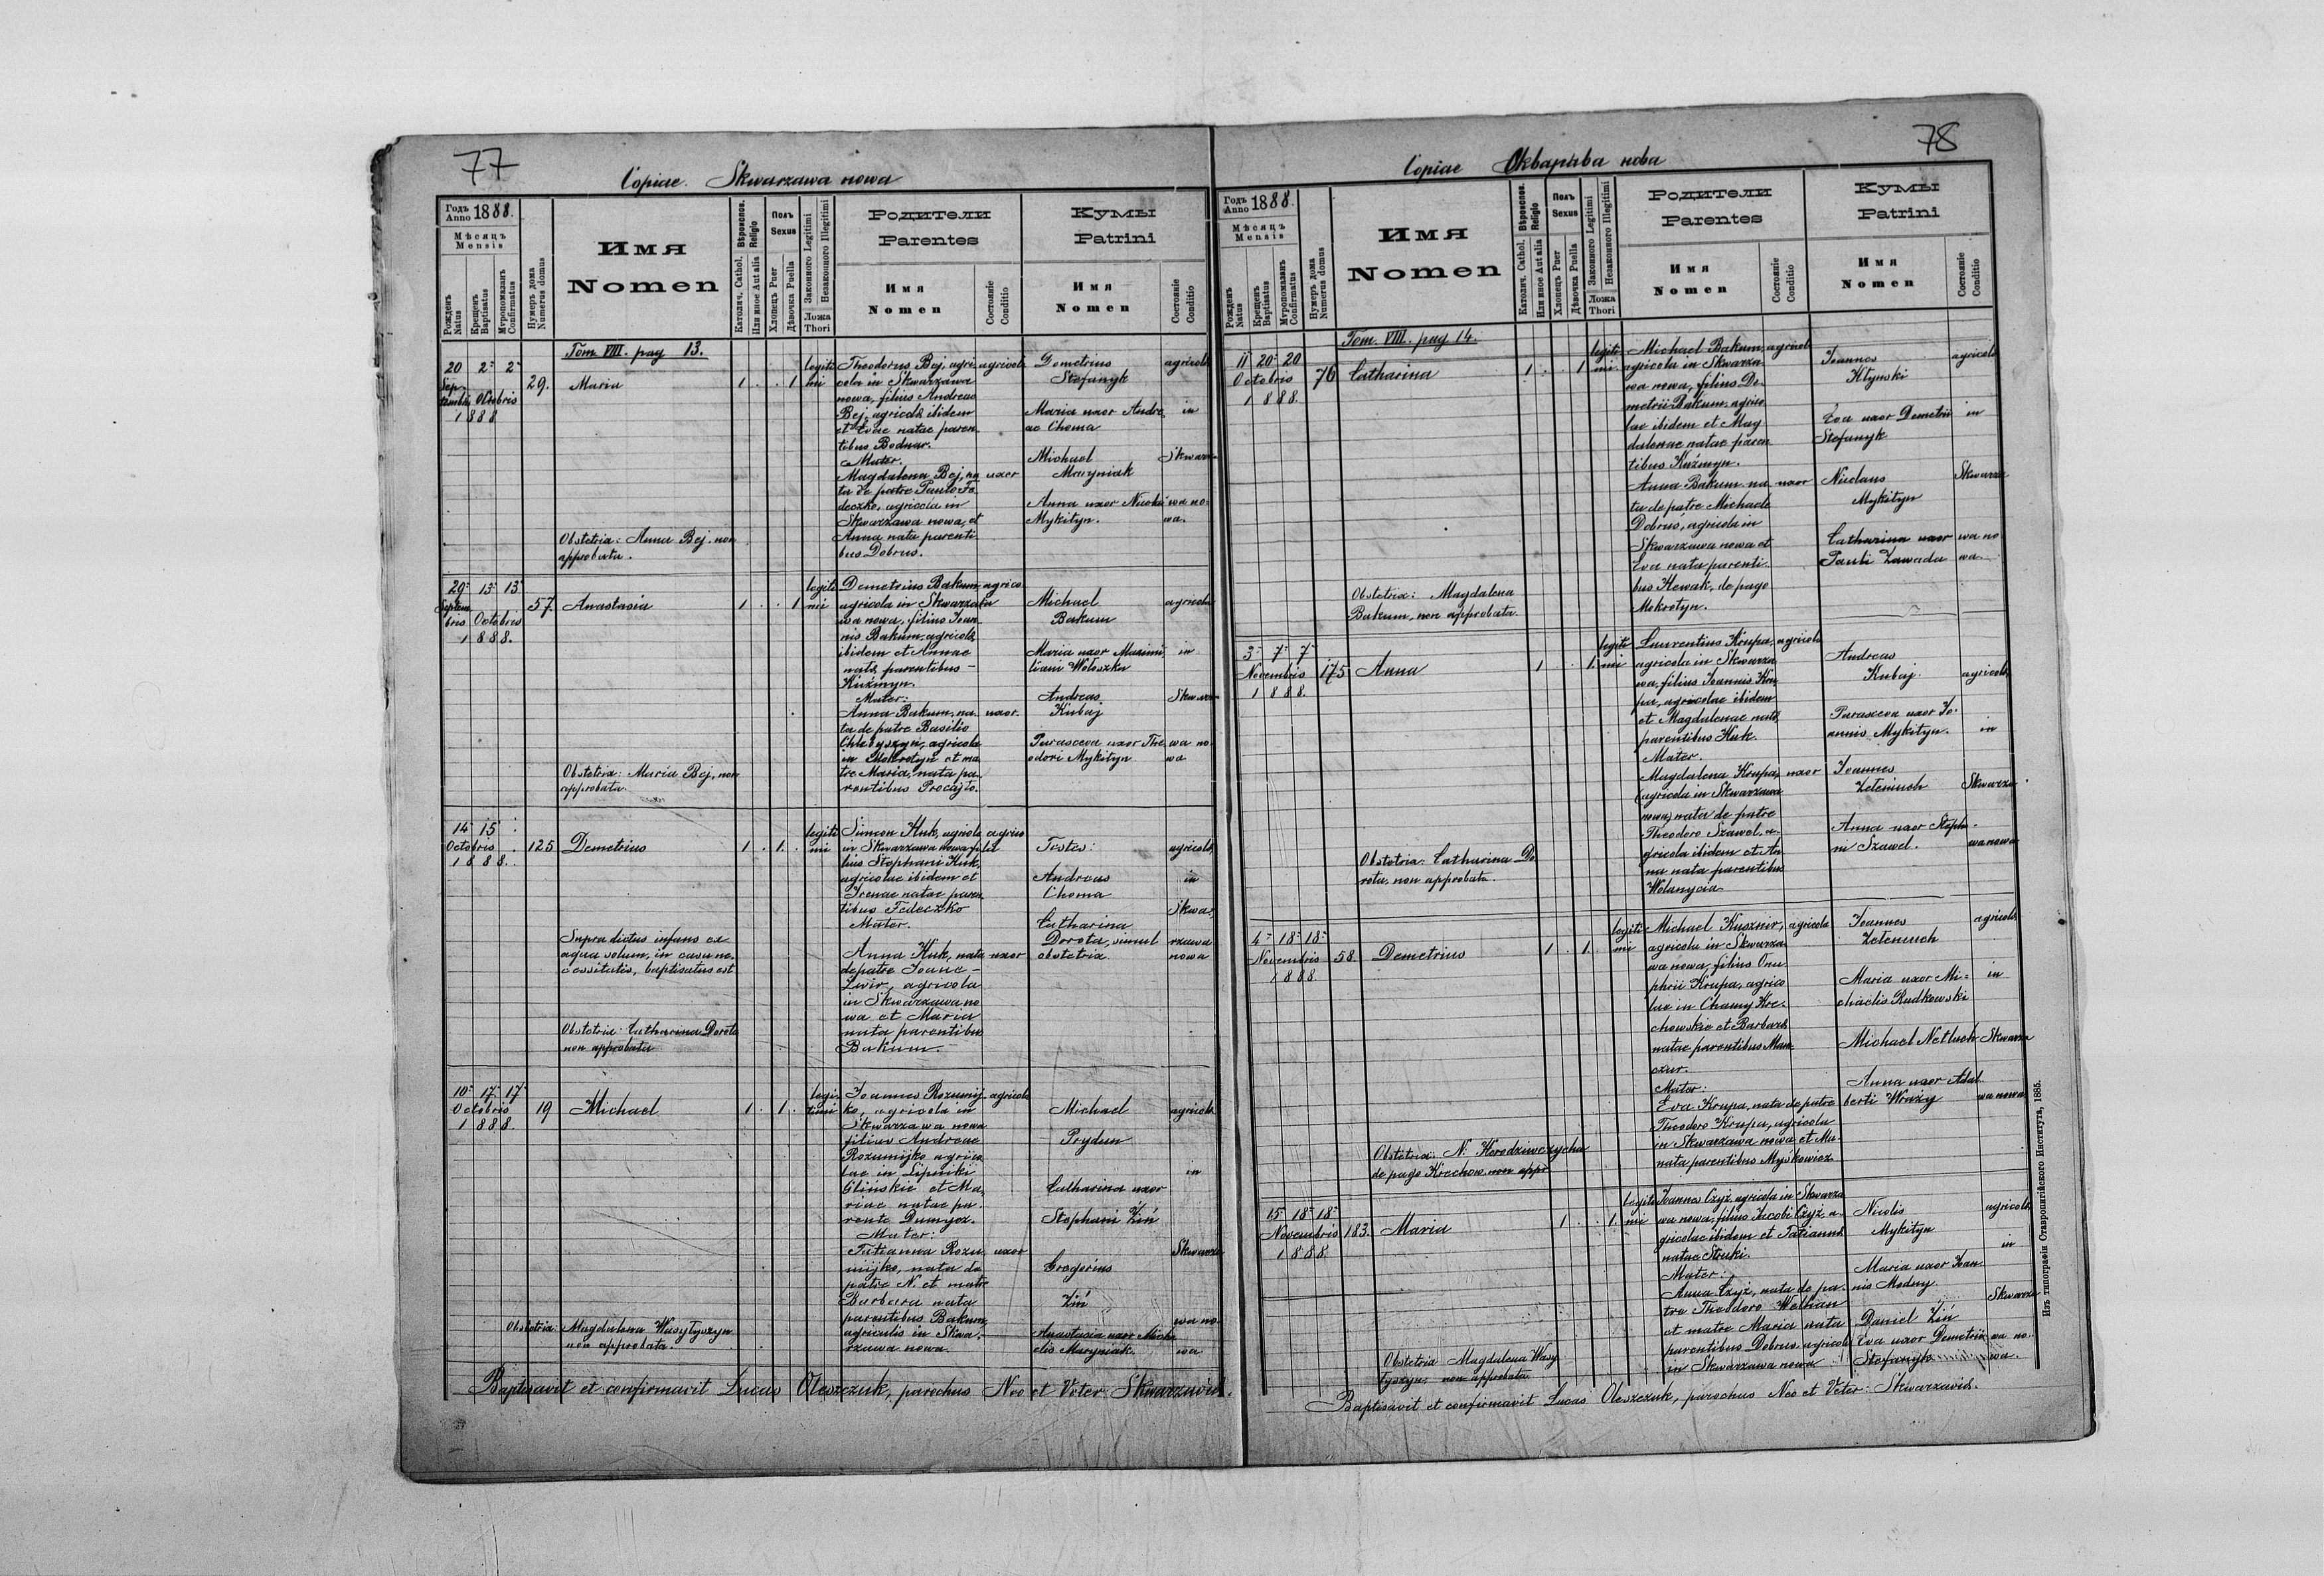 77
Copiae Skwarzawa nowa
Годъ Anno 1888.
Мѣсяцъ Mensis
Рожденъ Natus
Крещенъ Baptisatus
Мѵропомазанъ Confirmatus
Нумеръ дома Numerus domus
Имя
Nomen
Вѣроиспов. Religio
Католич. Cathol.
Или иное Aut alia
Полъ Sexus
Хлопецъ Puer
Дѣвочка Puella
Законного Legitimi
Незаконного Illegitimi
Ложа Thori
Родители
Parentes
Имя
Nomen
Состояніе
Conditio
Кумы
Patrini
Имя
Nomen
Состояніе
Conditio
Tom VIII. pag 13.
20 2 2
Septembris Octobris
1888
29. Maria 1 . . 1
legitimi
Theodorus Bej, agri-
cola in Skwarzawa
nowa, filius Andreae
Bej, agricolae ibidem
et Evae natae paren-
tibus Bodnar.
Mater.
Magdalena Bej, na-
ta de patre Paulo Fe-
deczko, agricola in
Skwarzawa nowa, et
Anna nata parenti-
bus Dobrus.
agricola
uxor
Demetrius
Stefanyk
Maria uxor Andre-
ae Choma
Michael
Maryniak
Anna uxor Nicolai
Mykityn.
agricolae
in
Skwarza-
wa no-
wa.
Obstetrix: Anna Bej. non
approbata.
29 13 13
Septembris Octobris
1888.
57. Anastasia 1 . . 1
legitimi
Demetrius Bakum,
agricola in Skwarza-
wa nowa, filius Joan-
nis Bakum, agricolae
ibidem et Annae
natae parentibus
Kuźmyn.
Mater:
Anna Bakum, na-
ta de patre Basilio
Chlebyszyn, agricola
in Mokrotyn et ma-
tre Maria, nata pa-
rentibus Procajło.
agricola
uxor.
Michael
Bakum
Maria uxor Maximi-
liani Wołoszka
Andreas
Kubaj
Parasceva uxor The-
odori Mykityn
agricolae
in
Skwarza-
wa no-
wa
Obstetrix: Maria Bej, non
approbata.
14 15 .
Octobris
1888.
125 Demetrius 1 . 1 .
legitimi
Simeon Huk, agricola
in Skwarzawa nowa, fi-
lius Stephani Huk,
agricolae ibidem et
Irenae natae paren-
tibus Fedeczko
Mater.
Anna Huk, nata
de patre Joanne
Lwir, agricola
in Skwarzawa no-
wa et Maria
nata parentibus
Bakum.
agricola
uxor
Testes:
Andreas
Choma
Catharina
Dorota, simul
obstetrix
agricolae
in
Skwa-
rzawa
nowa
Supra dictus infans ex
aqua solum, in casu ne-
cessitatis, baptisatus est
Obstetrix: Catharina Dorota
non approbata
10 17 17
Octobris
1888.
19 Michael 1 . 1 .
legitimi
Joannes Rozumij-
ko, agricola in
Skwarzawa nowa
filius Andreae
Rozumijko agrico-
lae in Lipniki
Glińskie et Ma-
riae natae pa-
rente Dumycz.
Mater:
Tatianna Rozu-
mijko, nata de
patre N. et matre
Barbara nata
parentibus Bakum,
agricolis in Skwa-
rzawa nowa.
agricola
uxor
Michael
Prydun
Catharina uxor
Stephani Ziń
Gregorius
Ziń
Anastasia uxor Micha-
elis Maryniak.
agricolae
in
Skwarza-
wa no-
wa
Obstetrix: Magdalena Wasyłyszyn
non approbata.
Baptisavit et confirmavit Lucas Oleszczuk, parochus Neo et Veter. Skwarzavien.
78
Copiae Скварява нова
Годъ Anno 1888.
Мѣсяцъ Mensis
Рожденъ Natus
Крещенъ Baptisatus
Мѵропомазанъ Confirmatus
Нумеръ дома Numerus domus
Имя
Nomen
Вѣроиспов. Religio
Католич. Cathol.
Или иное Aut alia
Полъ Sexus
Хлопецъ Puer
Дѣвочка Puella
Законного Legitimi
Незаконного Illegitimi
Ложа Thori
Родители
Parentes
Имя
Nomen
Состояніе
Conditio
Кумы
Patrini
Имя
Nomen
Состояніе
Conditio
Tom. VIII. pag 14.
11 20 20
Octobris
1888.
76 Catharina 1 . . 1
legitimi
Michael Bakum,
agricola in Skwarza-
wa nowa, filius De-
metrii Bakum, agrico-
lae ibidem et Mag-
dalenae natae paren-
tibus Kuźmyn.
Anna Bakum, na-
ta de patre Michaele
Dobrus, agricola in
Skwarzawa nowa et
Eva nata parenti-
bus Hewak, de pago
Mokrotyn.
agricola
uxor
Joannes
Kłynski
Eva uxor Demetrii
Stefanyk
Nicolaus
Mykityn
Catharina uxor
Pauli Zawada
agricolae
in
Skwarza-
wa no-
wa.
Obstetrix: Magdalena
Bakum, non approbata.
3 7 7
Novembris
1888.
175 Anna 1 . . 1.
legitimi
Laurentius Krupa,
agricola in Skwarza-
wa, filius Joannis Kru-
pa, agricolae ibidem
et Magdalenae natae
parentibus Huk.
Mater.
Magdalena Krupa,
(agricola in Skwarzawa
nowa) nata de patre
Theodoro Szawel, a-
gricola ibidem et An-
na nata parentibus
Wolanycia
agricola
uxor
Andreas
Kubaj.
Parasceva uxor Jo-
annis Mykityn.
Joannes
Zeleniuch
Anna uxor Stepha-
ni Szawel.
agricolae
in
Skwarza-
wa nowa
Obstetrix: Catharina Do-
rota, non approbata.
4 18 18
Novembris
1888
58. Demetrius 1 . 1.
legitimi
Michael Kusznir,
agricola in Skwarza-
wa nowa, filius Onu-
phrii Krupa, agrico-
lae in Chamy Kre-
chowskie et Barbarae
natae parentibus Man-
czur.
Mater:
Eva Krupa, nata de patre
Theodoro Krupa, agricola
in Skwarzawa nowa et Ma-
nata parentibus Myśkowicz
agricola
Joannes
Zeleniuch
Maria uxor Mi-
chaelis Rudkowski
Michael Netluch
Anna uxor Adal-
berti Wrazy
agricolae
in
Skwarza-
wa nowa
Obstetrix: N. Horodzinczycha
de pago Krechow. non appr
15 18 18
Novembris
1888
183. Maria 1 . . 1.
legitimi
Joannes Czyż, agricola in Skwarza-
wa nowa, filius Jacobi Czyż, a-
gricolae ibidem et Tatiannae
natae Struki.
Mater:
Anna Czyż, nata de pa-
tre Theodoro Wolhan
et matre Maria nata
parentibus Dobrus, agricolis
in Skwarzawa nowa
Nicolis
Mykityn
Maria uxor Joan-
nis Modny.
Daniel Ziń
Eva uxor Demetrii
Stefanyk
agricolae
in
Skwarza-
wa no-
wa.
Obstetrix Magdalena Wasy-
łyszyn, non approbata
Baptisavit et confirmavit Lucas Oleszczuk, parochus Neo et Veter: Skwarzavien.
Изъ типографіи Ставропигійского Института, 1885.